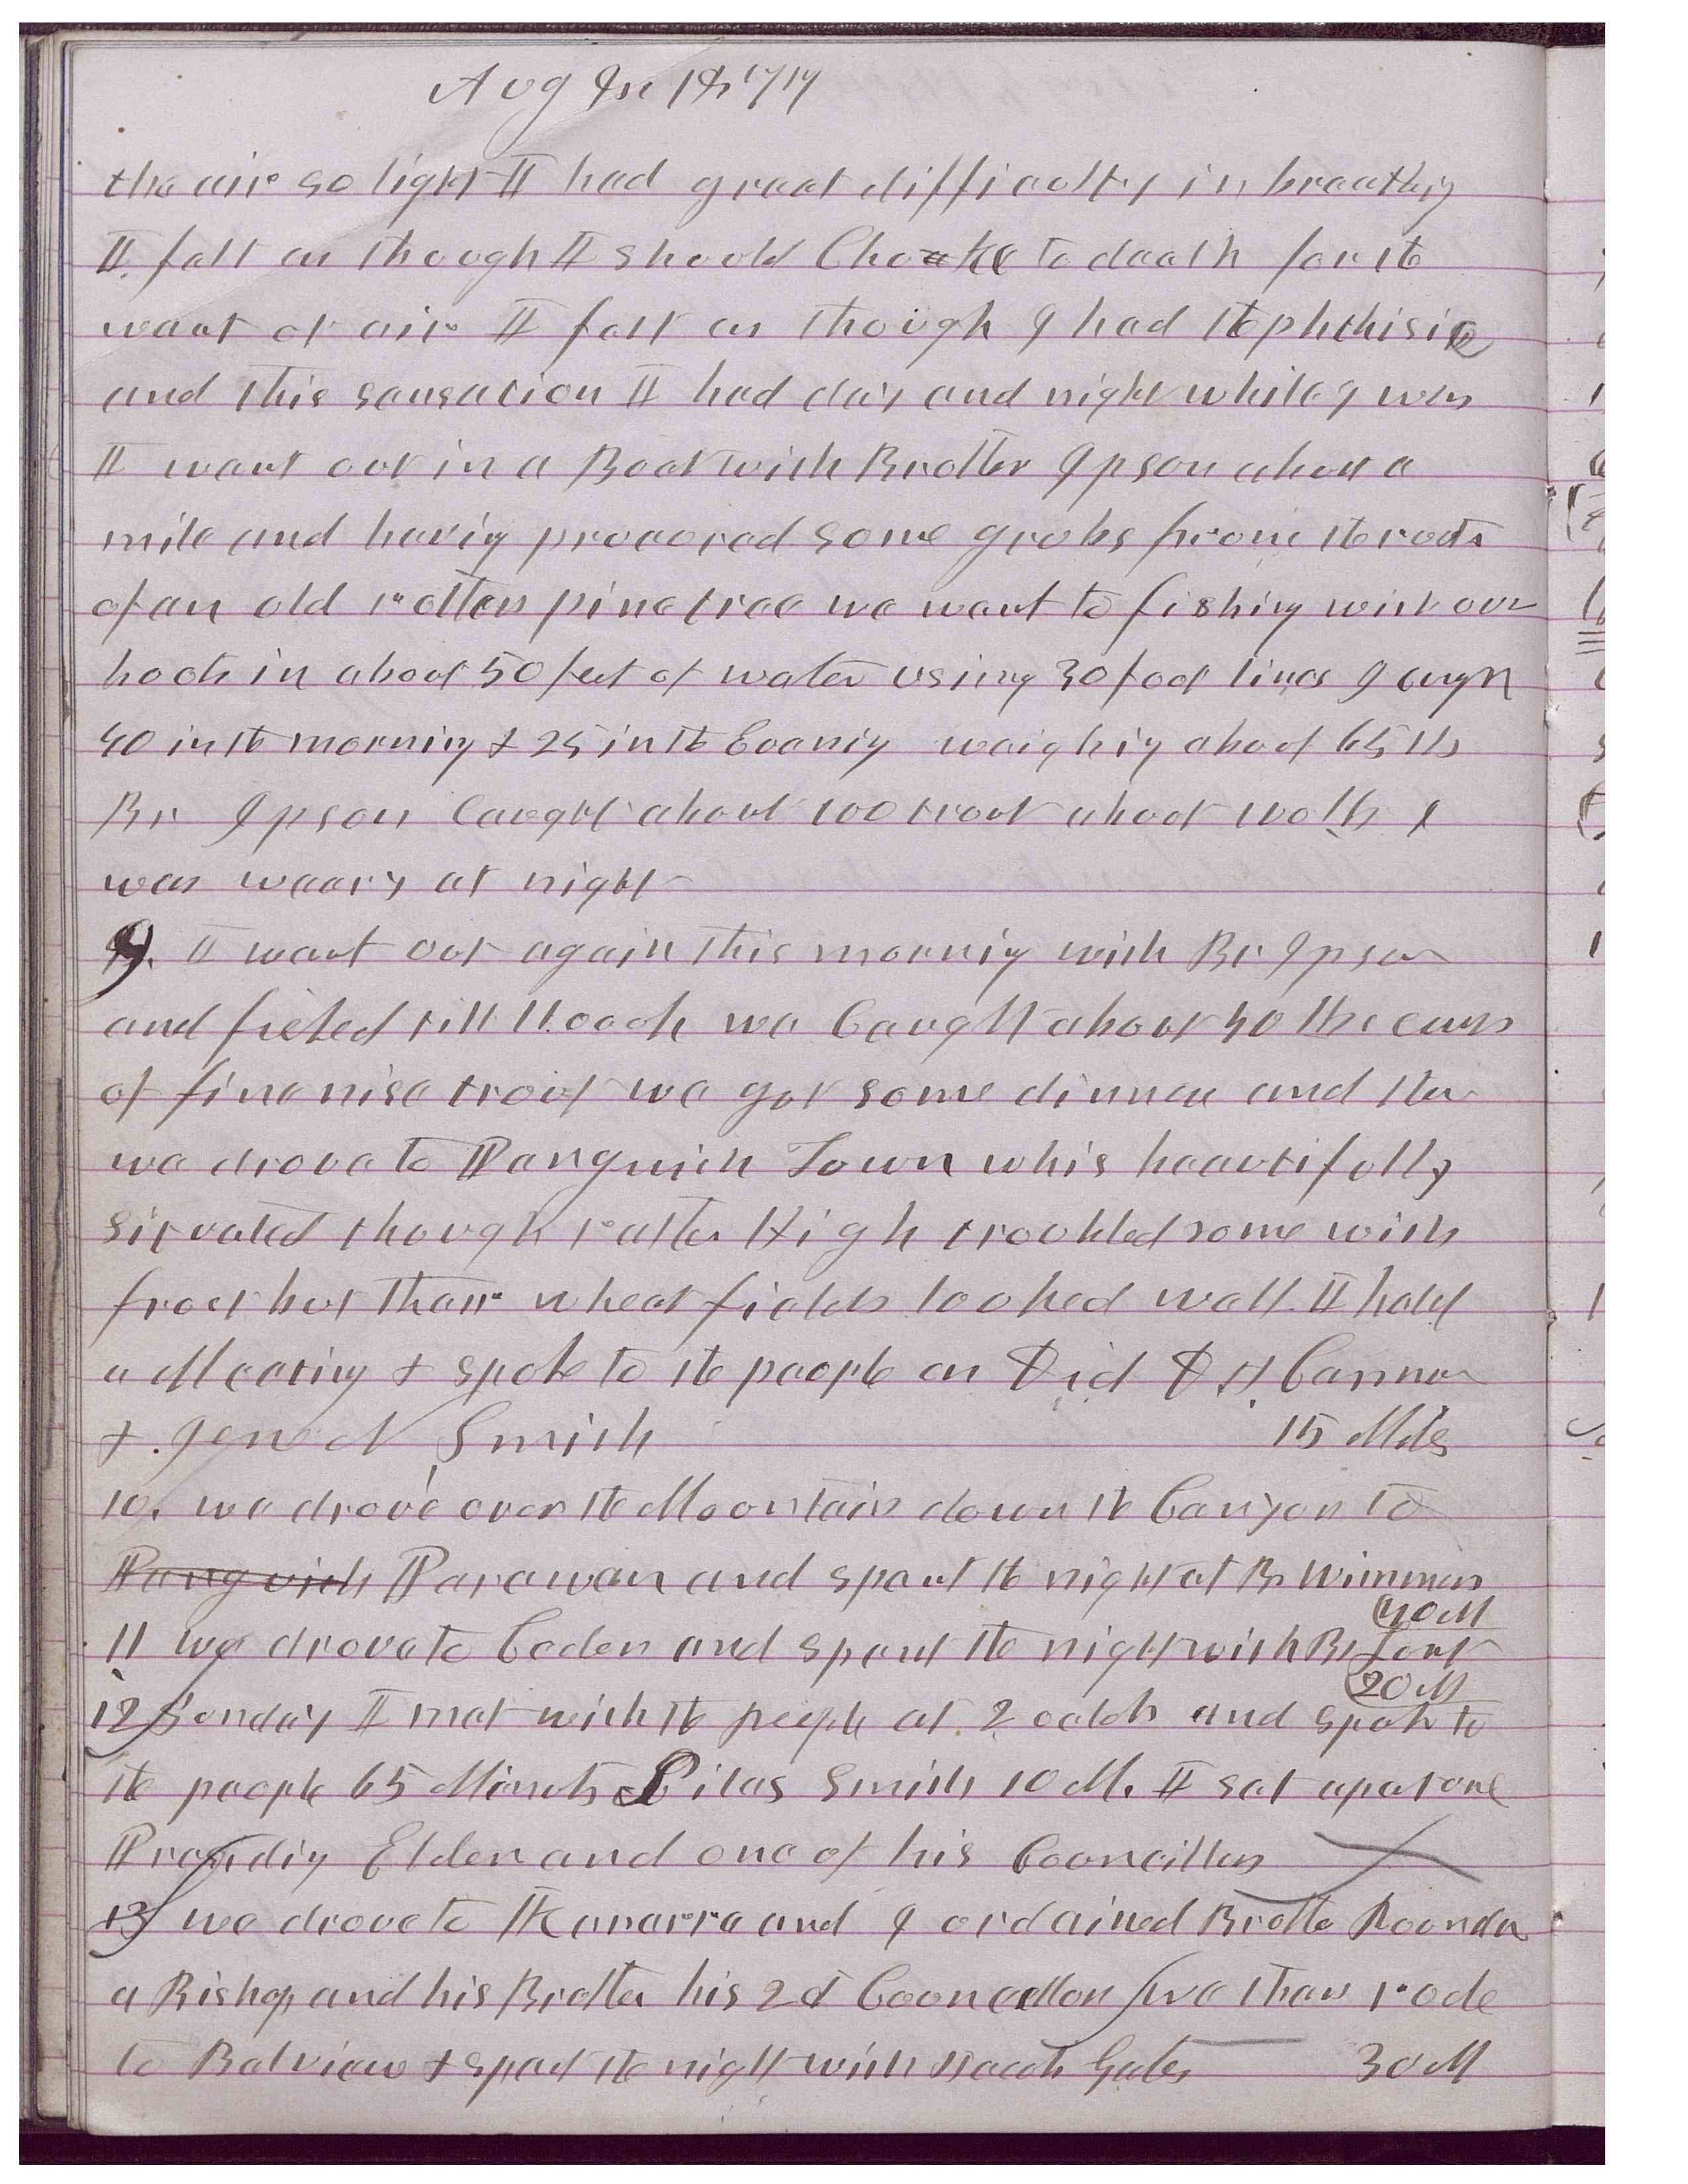 Aug 8th 1877
the air so light I had great difficulty in breathig
I felt as though I should Choake to death for the
want of air I felt as though I had the phthisic
and this sensation I had day and night while I was
I went out in a Boat with Brother Ipson about a
mile and havig procured some grubs from the roots
of an old rotten pine tree we went to fishing with our
hook in about 50 feet of water using 30 foot lines I caugh
40 in the morning & 25 in the Evenig weighig about 65 lbs
Br Ipson Caught about 100 trout about 100 lb I
was weary at night
9. I went out again this mornig with Br Ipson
and fished till 11 ocok we Caught about 40 lbs each
of fine nise trout we got some dinner and then
we drove to Panguich Town whis beautifully
situated though rather High troubled some with
frost but their wheat fields looked well. I held
a Meeting & spoke to the people as Did D H Cannon
& Jene N Smith 15 Miles
10. we drove over the Mountain down the Canyon to
Panguich Parawan and spent the night at Br Wimmers
40 M
11 we drove to Ceder and spent the night with Br Lunt
20 M
12 Sunday I met with the people at 2 oclok and spoke to
the people 65 Minuts Silas Smith 10 M. I set apart one
Presidig Elder and one of his Councillors
13 we drove to Kanarra and I ordained Brother Roundy
a Bishop and his Brother his 2d Councellor we then rode
to Belview & spent the night with Jacob Gates 30 M